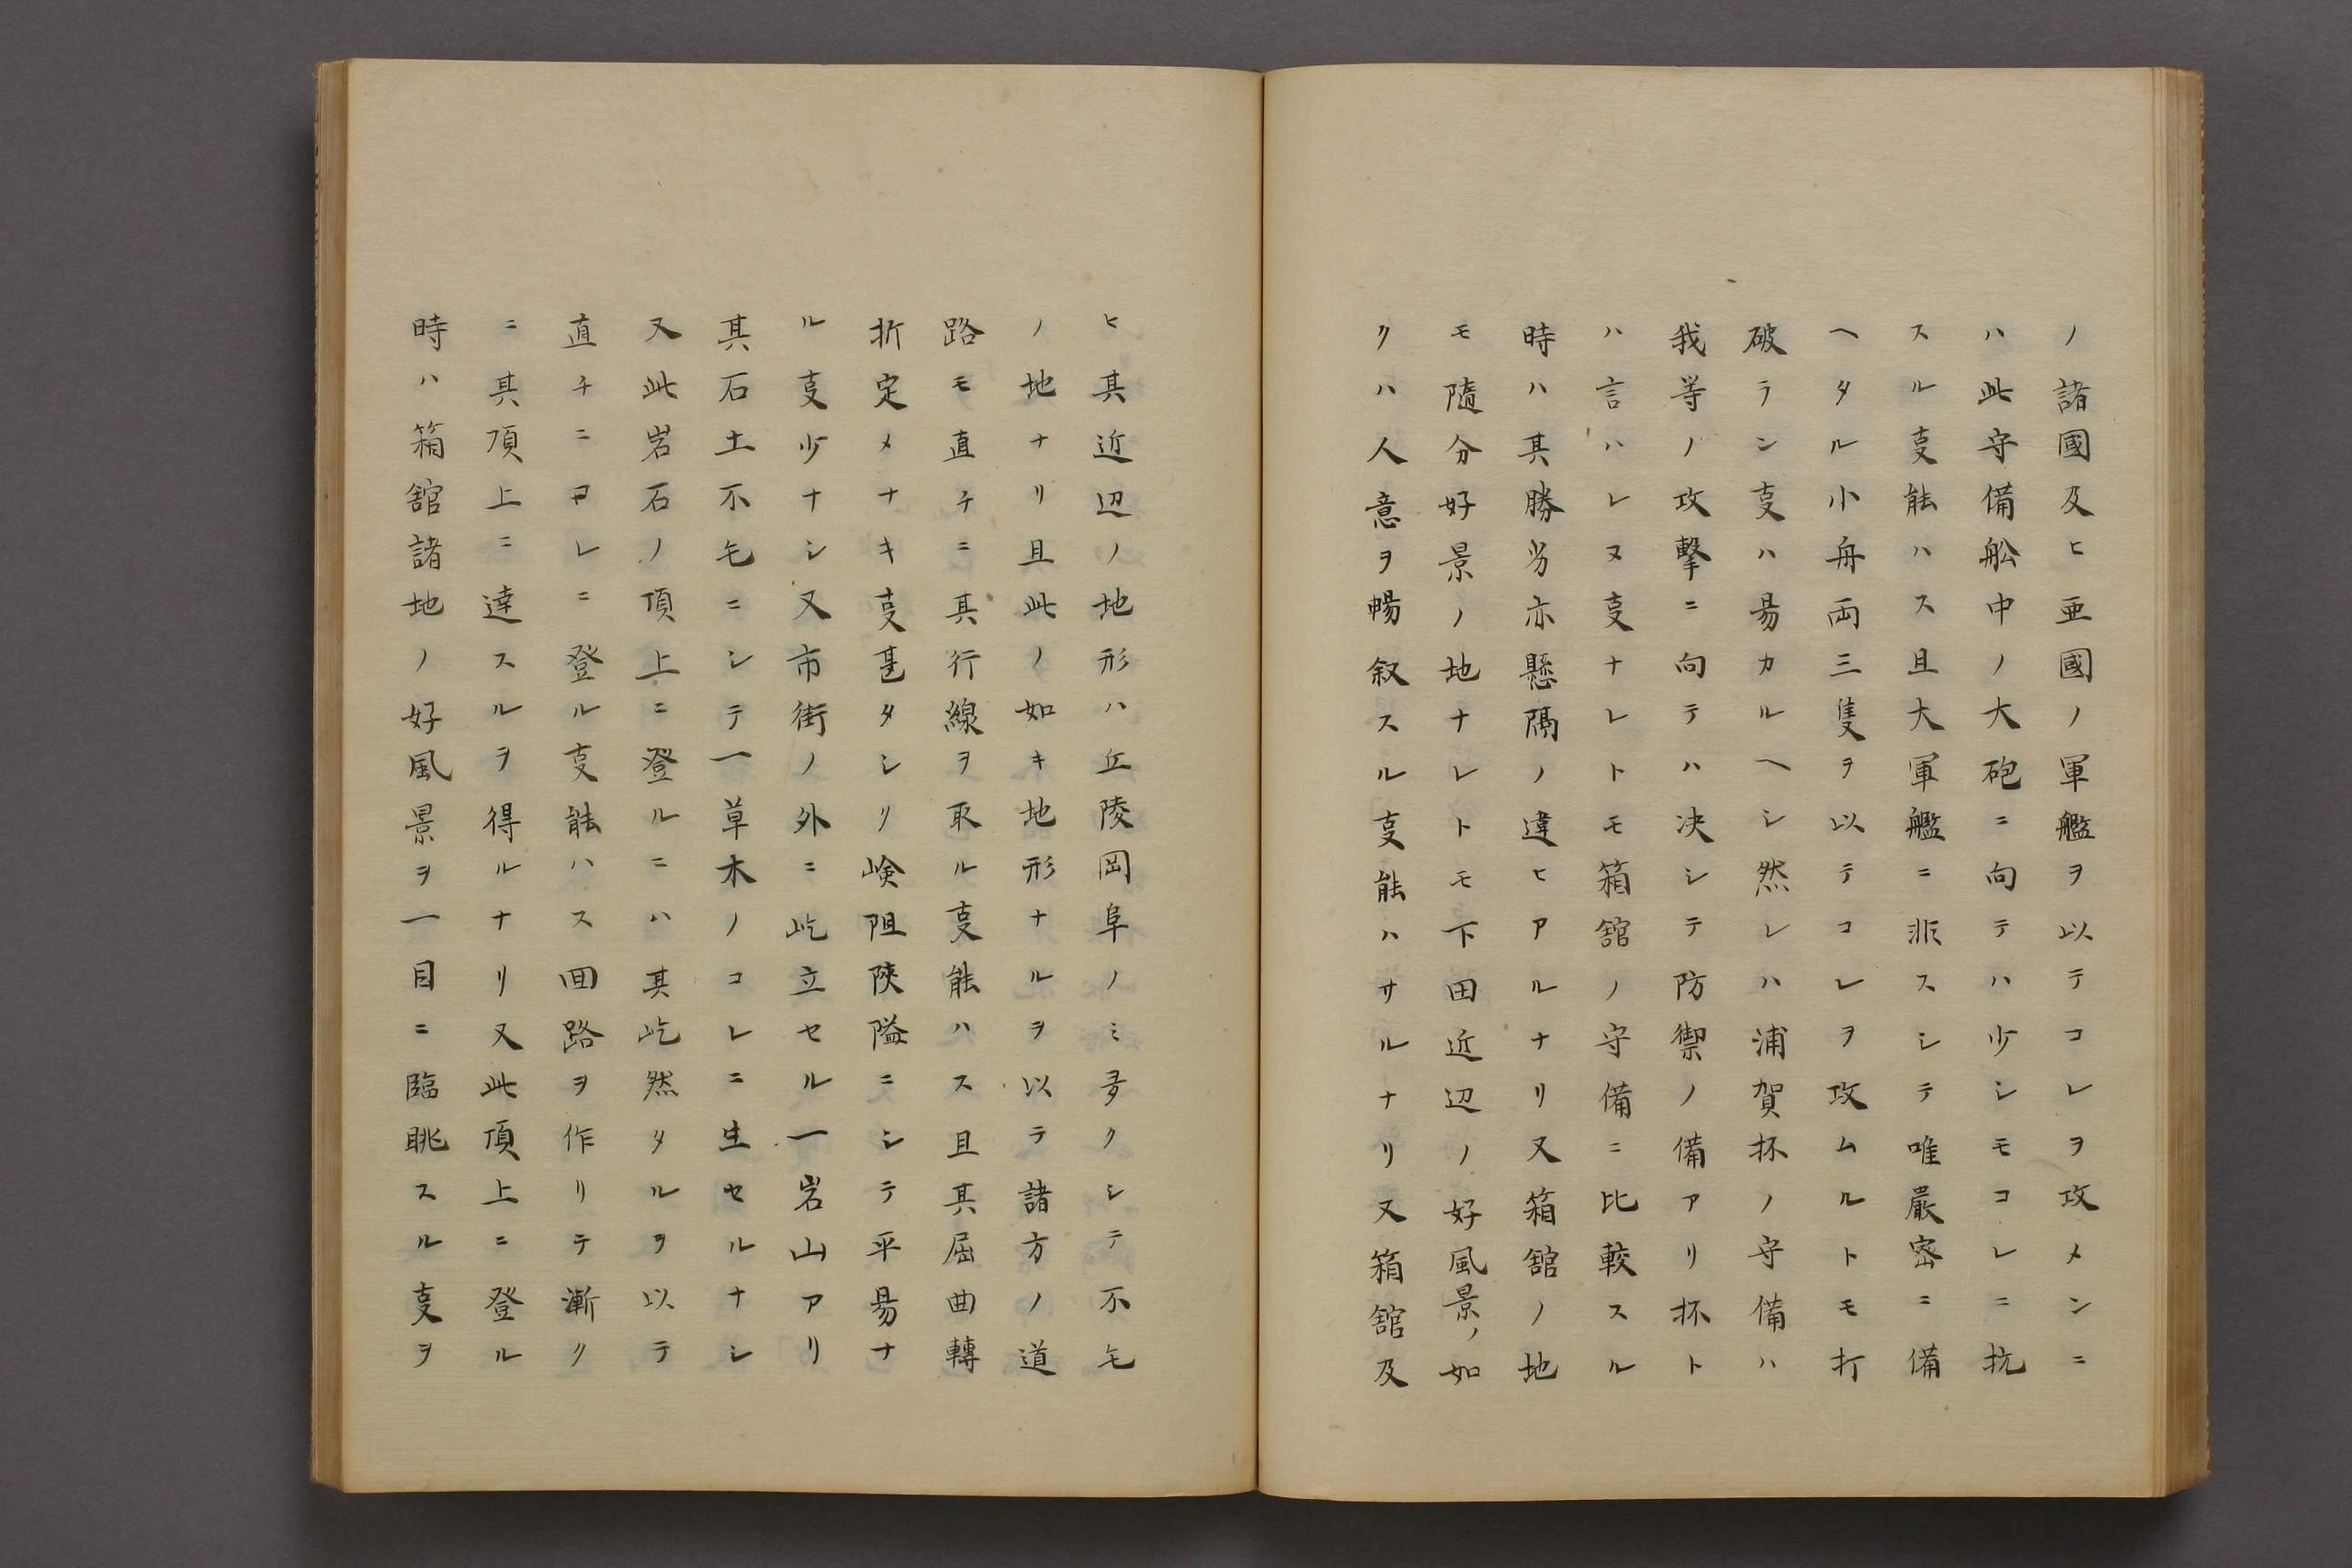 ノ諸國及ヒ亜國ノ軍艦ヲ以テコレヲ攻メンニ
ハ此守備舩中ノ大砲ニ向テハ少シモコレニ抗
スル叓能ハス且大軍艦ニ非スシテ唯嚴密ニ備
ヘタル小舟両三隻ヲ以テコレヲ攻ムルトモ打
破ラン叓ハ易カルヘシ然レハ浦賀抔ノ守備ハ
我等ノ攻擊ニ向テハ决シテ防禦ノ備アリ抔ト
ハ言ハレヌ叓ナレトモ箱舘ノ守備ニ比較スル
時ハ其勝劣亦懸隔ノ違ヒアルナリ又箱舘ノ地
モ隨分好景ノ地ナレトモ下田近辺ノ好風景ノ如
クハ人意ヲ暢叙スル叓能ハサルナリ又箱舘及
ヒ其近辺ノ地形ハ丘陵岡阜ノミ多クシテ不毛
ノ地ナリ且此ノ如キ地形ナルヲ以テ諸方ノ道
路モ直チニ其行線ヲ取ル叓能ハス且其屈曲轉
折定メナキ叓甚タシリ嶮阻陜隘ニシテ平易ナ
ル叓少ナシ又市街ノ外ニ屹立セル一岩山アリ
其石土不毛ニシテ一草木ノコレニ生セルナシ
又此岩石ノ頂上ニ登ルニハ其屹然タルヲ以テ
直チニコレニ登ル叓能ハス回路ヲ作リテ漸ク
ニ其頂上ニ達スルヲ得ルナリ又此頂上ニ登ル
時ハ箱舘諸地ノ好風景ヲ一目ニ臨眺スル叓ヲ